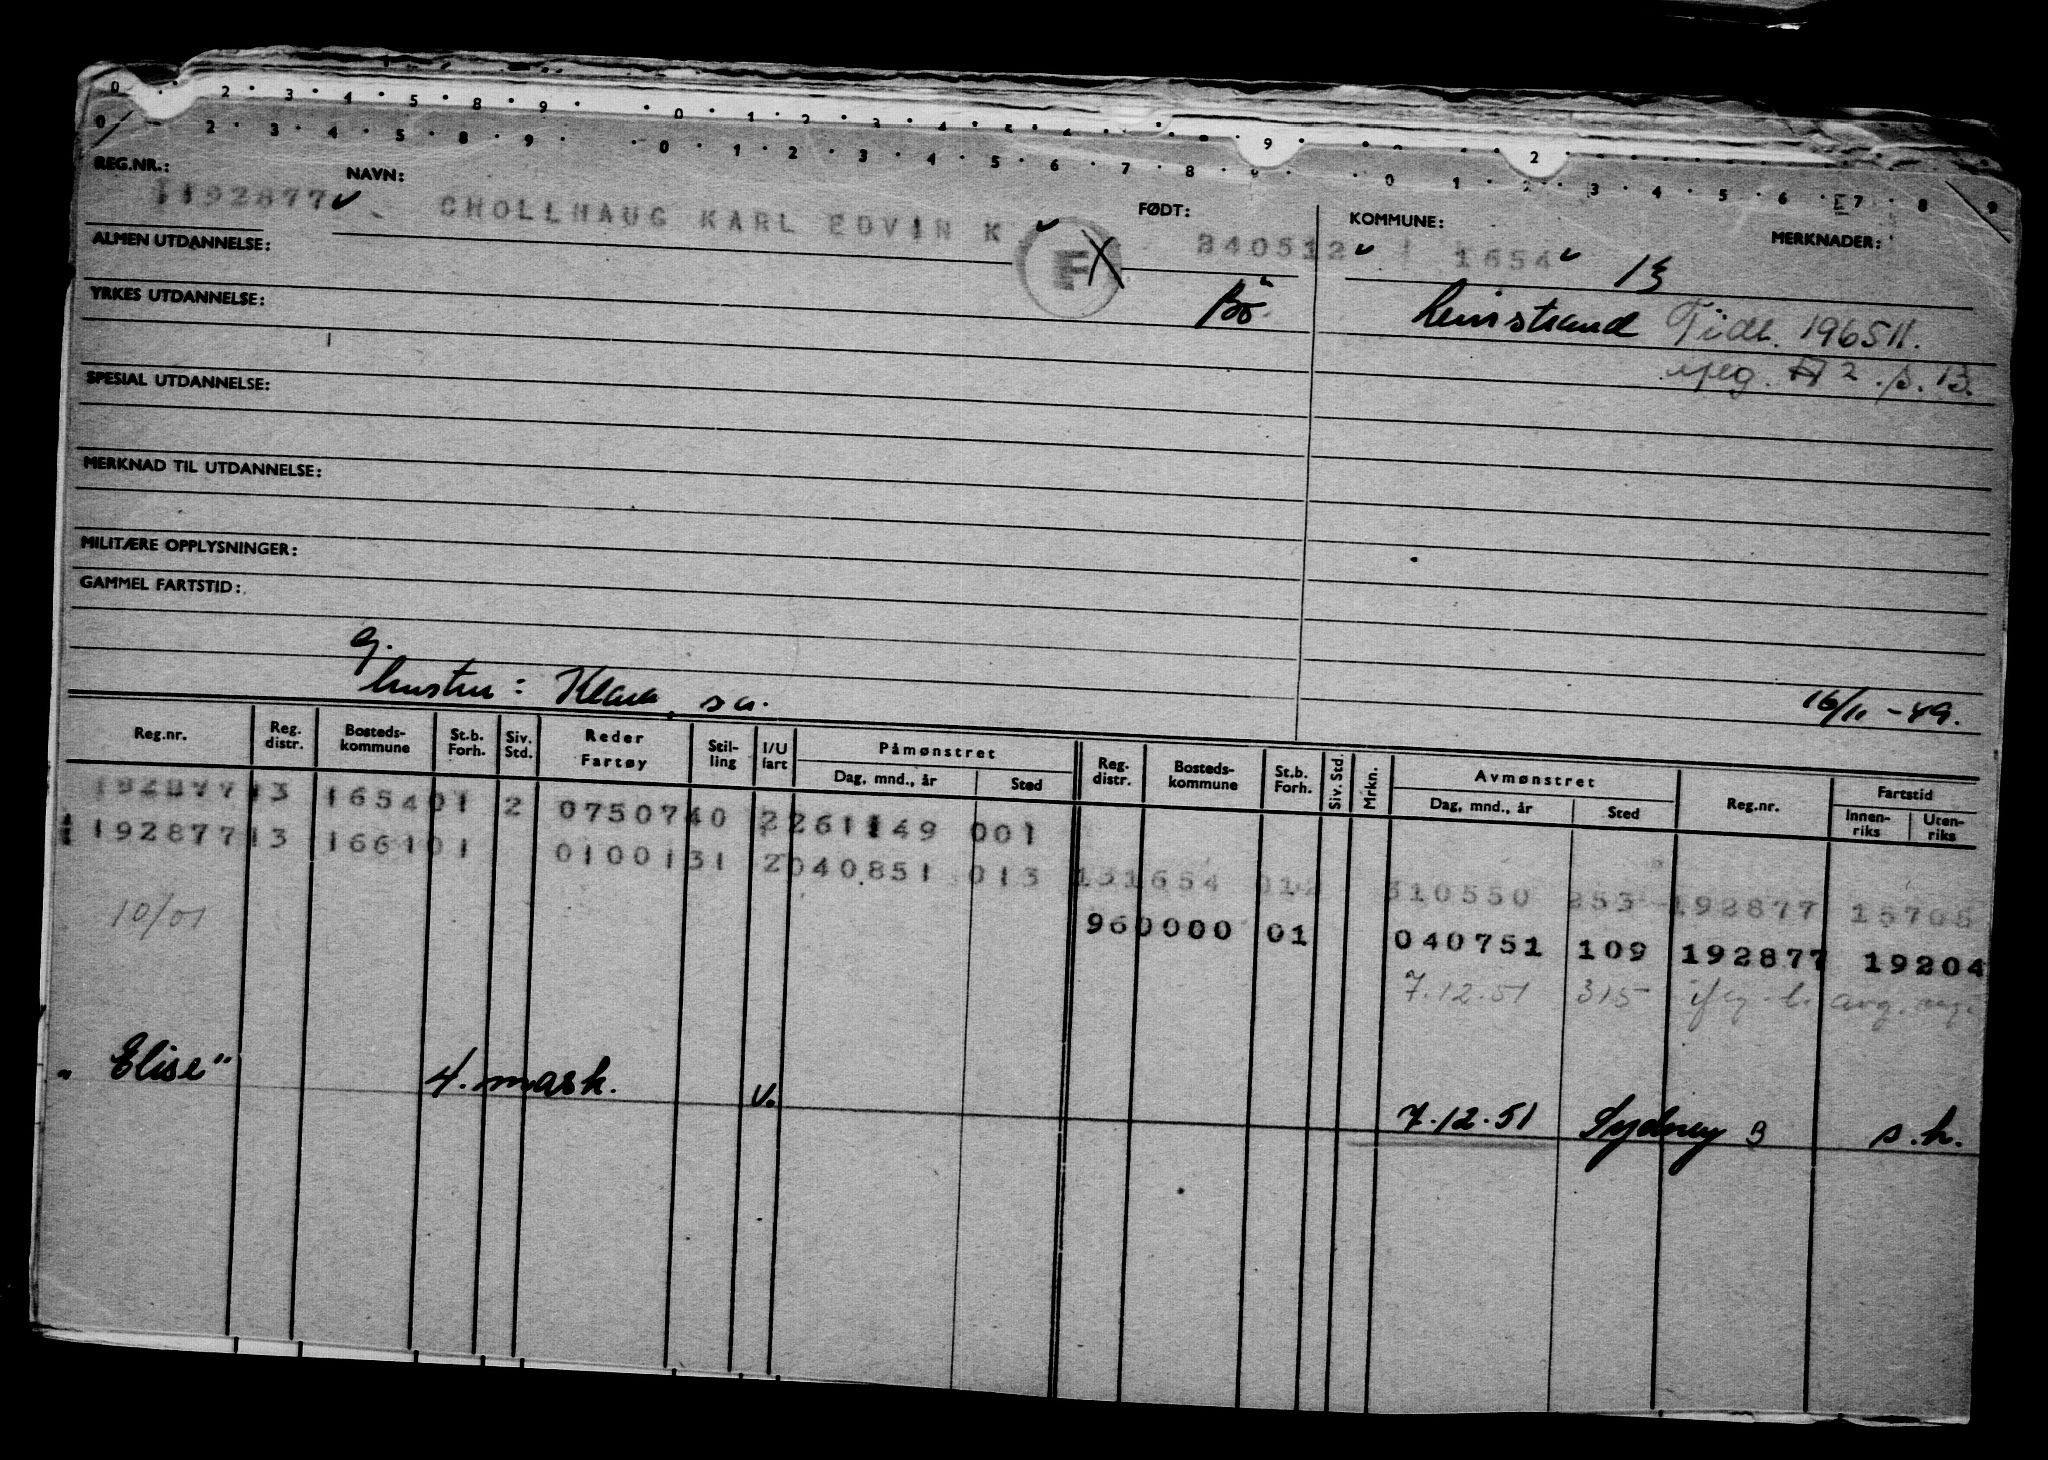 0 2 · 3 · 4 · 5 · 8 · 9 · · 0 · 1 · 2 · 3 · 4 · 5 · 9 · 2
0 2 · 3 · 4 · 5 · 8 · 9 · · 0 · 1 · 2 · 3 · 4 · 5 · 6 · 7 · 8 · · 0 · 1 · 2 · 3 · 4 · 5 · 6 · 7 · 8 · 9
REG.NR.: NAVN: FØDT: KOMMUNE: MERKNADER:
192877 CHOLLHAUG KARL EDVIN K F 240512 1654 13
ALMEN UTDANNELSE:
Bö. Leinstrand Tidl. 1965 M.
YRKES UTDANNELSE:
2 s. B.
SPESIAL UTDANNELSE:
MERKNAD TIL UTDANNELSE:
MILITÆRE OPPLYSNINGER:
GAMMEL FARTSTID:
g.
hustru: Klara, s a. 16/11 - 49.
Reg.nr. Reg. distr. Bosteds- kommune St.b. Forh. Siv. Std. Reder Fartøy Stil- ling I/U fart Påmønstret Dag, mnd., år Sted Reg. distr. Bosteds- kommune St.b. Forh. Siv. Std. Mrkn. Avmønstret Dag, mnd., år Sted Reg.nr. Fartstid Innen- riks Uten- riks
192877 13 1654 01 2 0750740 2 261149 001
192877 13 1661 01 0100131 2 040851 013 131654 012 310550 253 192877 15705
10/01 960000 01 040751 109 192877 19204
7.12.51 315
"Elise" 4. mask. v. 7.12.51 Sydney B s.h.